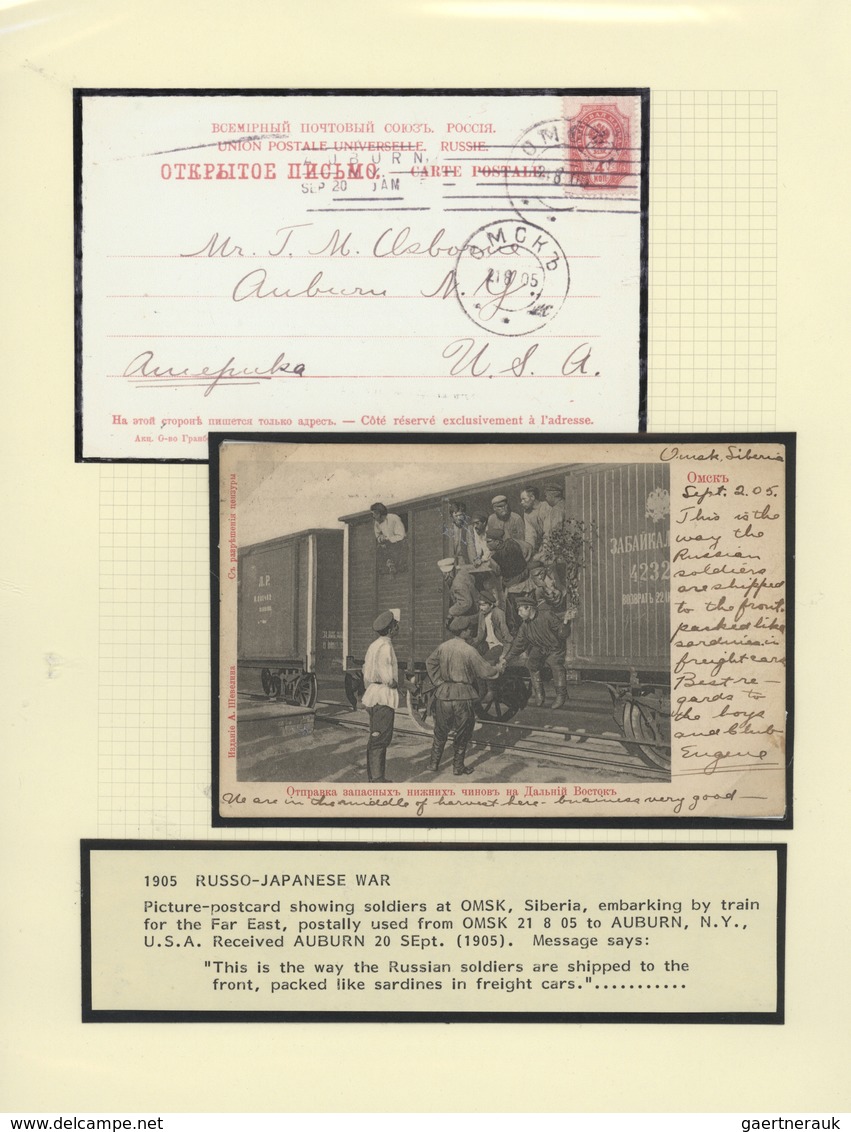 ВСЕМІРНЫЙ ПОЧТОВЫЙ СОЮЗЪ. РОССІЯ.
UNION POSTALE UNIVERSELLE. RUSSIE.
ОТКРЫТОЕ ПИСЬМО. — CARTE POSTALE
AUBURN
SEP 20 AM
ОМСКЪ
21 8 05
Mr. T. M. Osborne
Auburn N. Y.
Америка U. S. A.
На этой сторонѣ пишется только адресъ. — Côté réservé exclusivement à l'adresse.
Акц. О-во
Съ разрѣшенія цензуры
Изданіе А. Шевелина
Л.Р.
ЗАБАЙКАЛ
4232
ВОЗВРАТЪ 22
Omsk, Siberia
Омскъ
Sept. 2. 05.
This is the
way the
Russian
soldiers
are shipped
to the front.
packed like
sardines in
freight cars
Best re-
gards to
the boys
and Club
Eugene
Отправка запасныхъ нижнихъ чиновъ на Дальній Востокъ
We are in the middle of harvest here - business very good —
1905 RUSSO-JAPANESE WAR
Picture-postcard showing soldiers at OMSK, Siberia, embarking by train
for the Far East, postally used from OMSK 21 8 05 to AUBURN, N.Y.,
U.S.A. Received AUBURN 20 SEpt. (1905). Message says:
"This is the way the Russian soldiers are shipped to the
front, packed like sardines in freight cars."...........
gaertnerauk